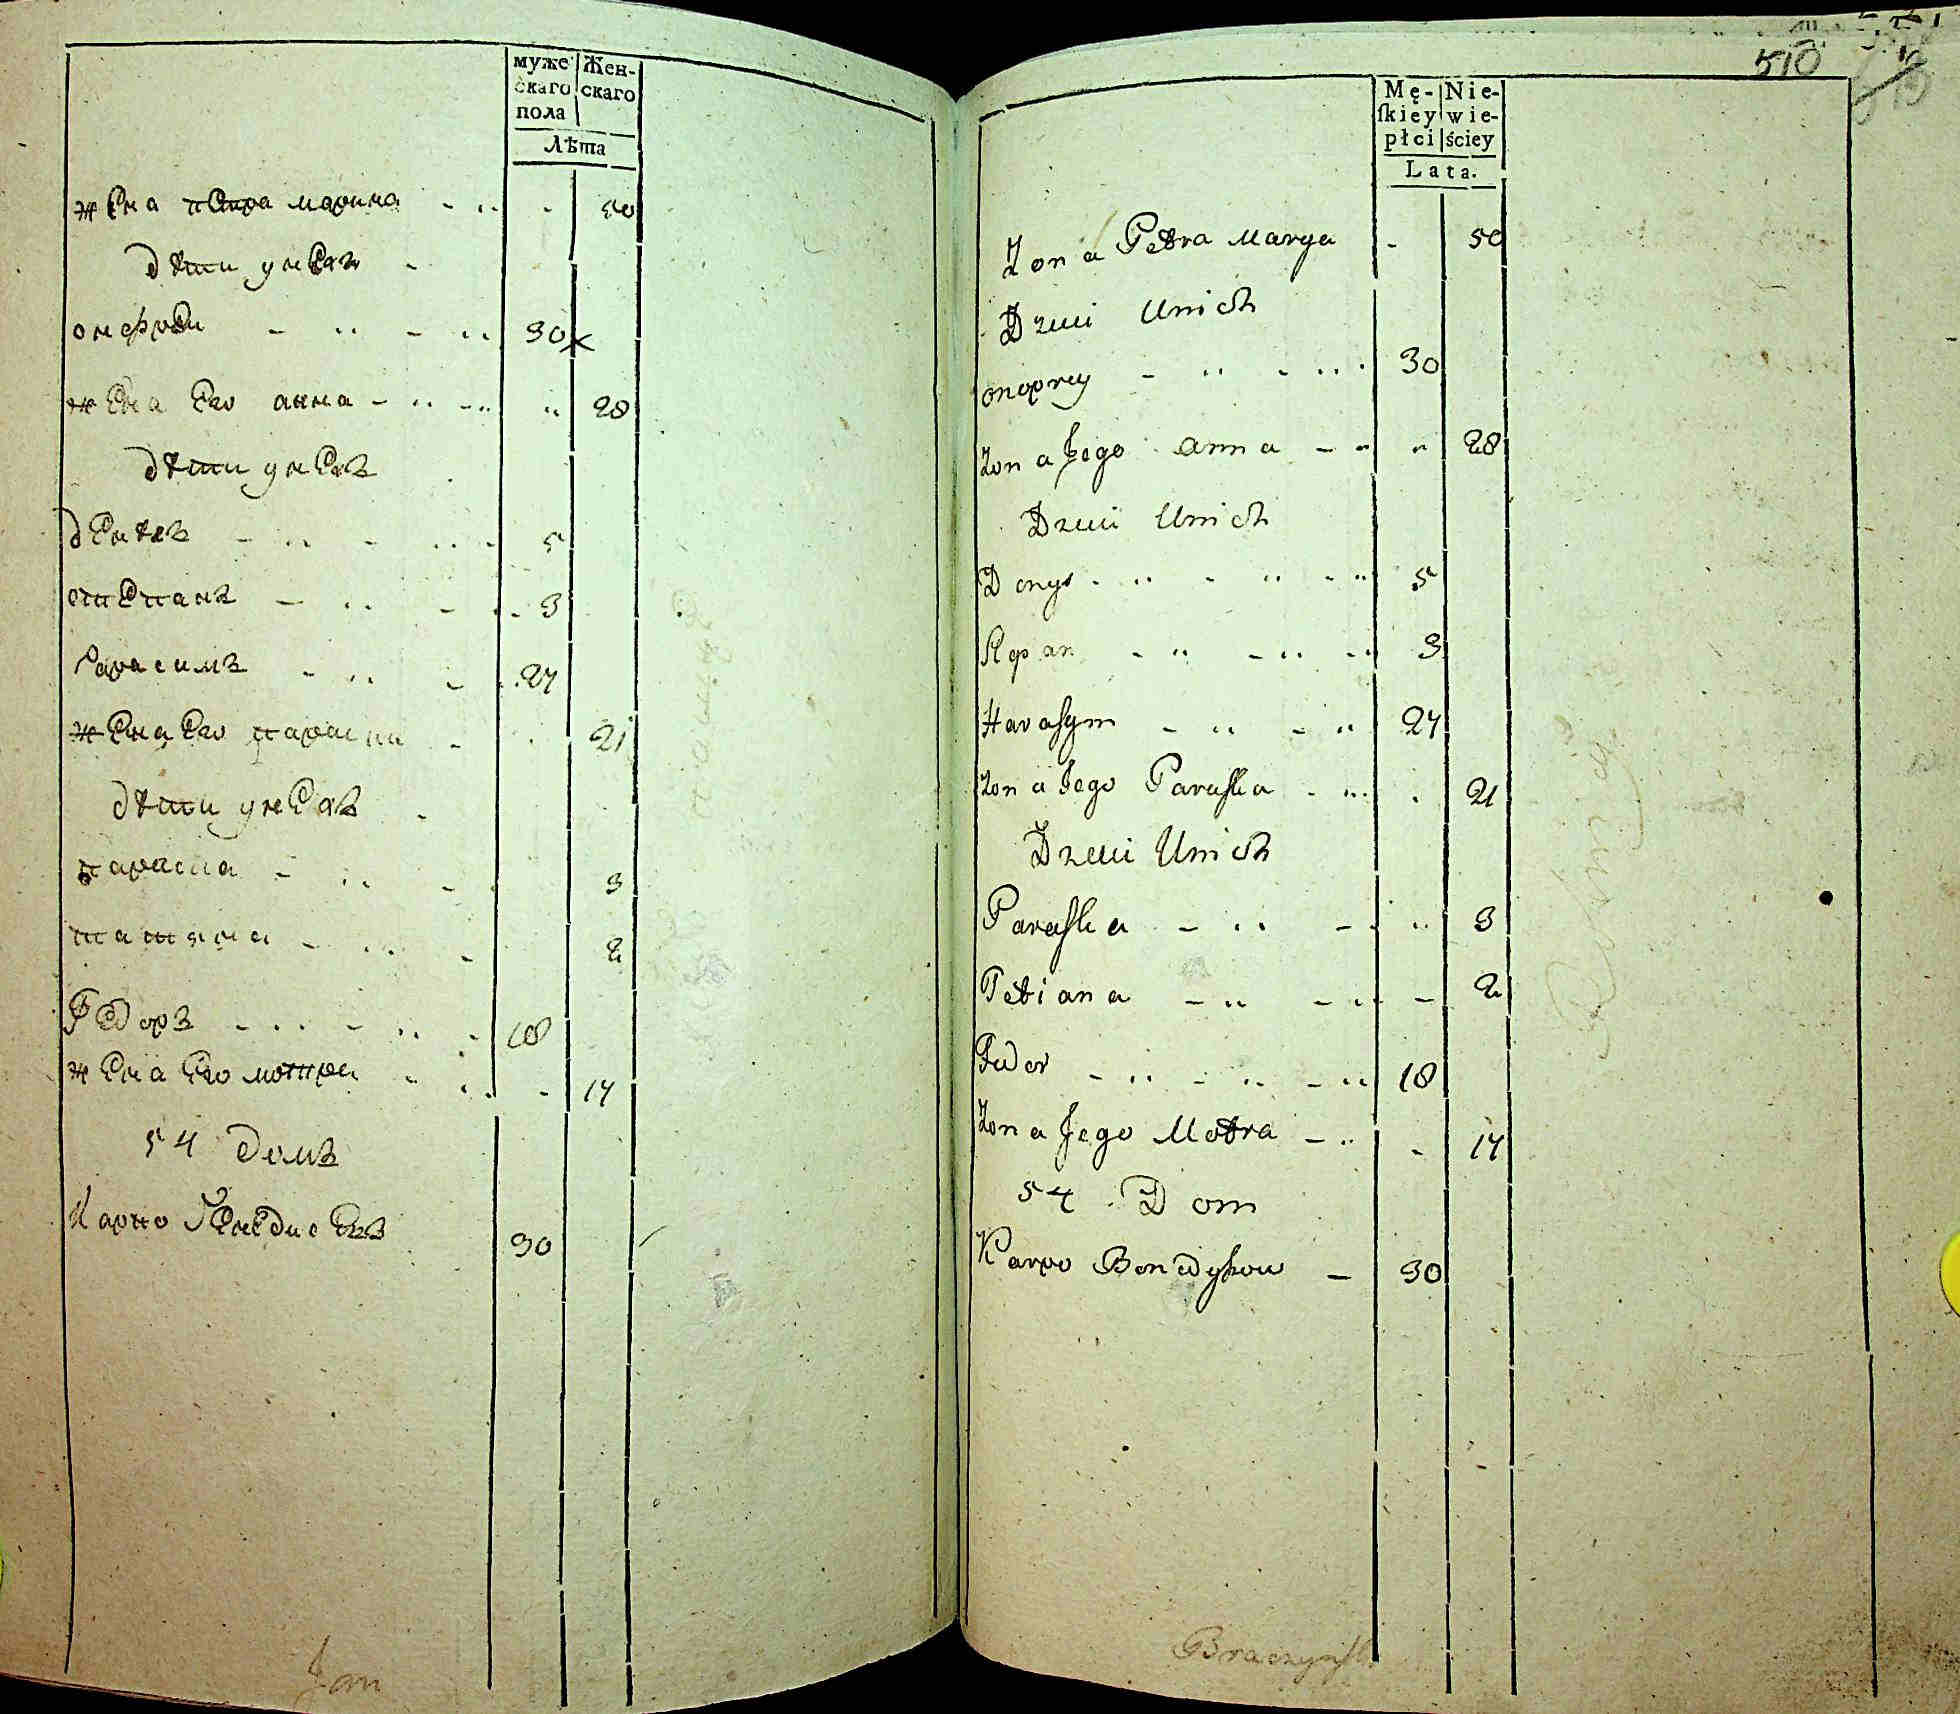 муже
скаго
пола
Жен-
скаго
Лѣта
жена петра марина 50
дѣти унехъ
онофрѣй 30 х
жена его анна 28
дѣти унехъ
денѣсъ 5
степанъ 3
гарасимъ 24
жена его параска 21
дѣти унехъ
параска 3
татяна 2
Федоръ 18
жена его мотра 17
54 домъ
Карпо
30
Jan
510
Mę-
ſkiey
płci
Nie-
wie-
ściey
Lata.
Zona Petra Marya 50
Dzieci Unich
onoprey 30
Zona Jego anna 28
Dzieci Unich
Denys 5
Stepan 3
Haraſym 24
Zona Jego Paraſka 21
Dzieci Unich
Paraſka 3
Tetiana 2
Fedor 18
Zona Jego Motra 17
54 Dom
Karpo 30